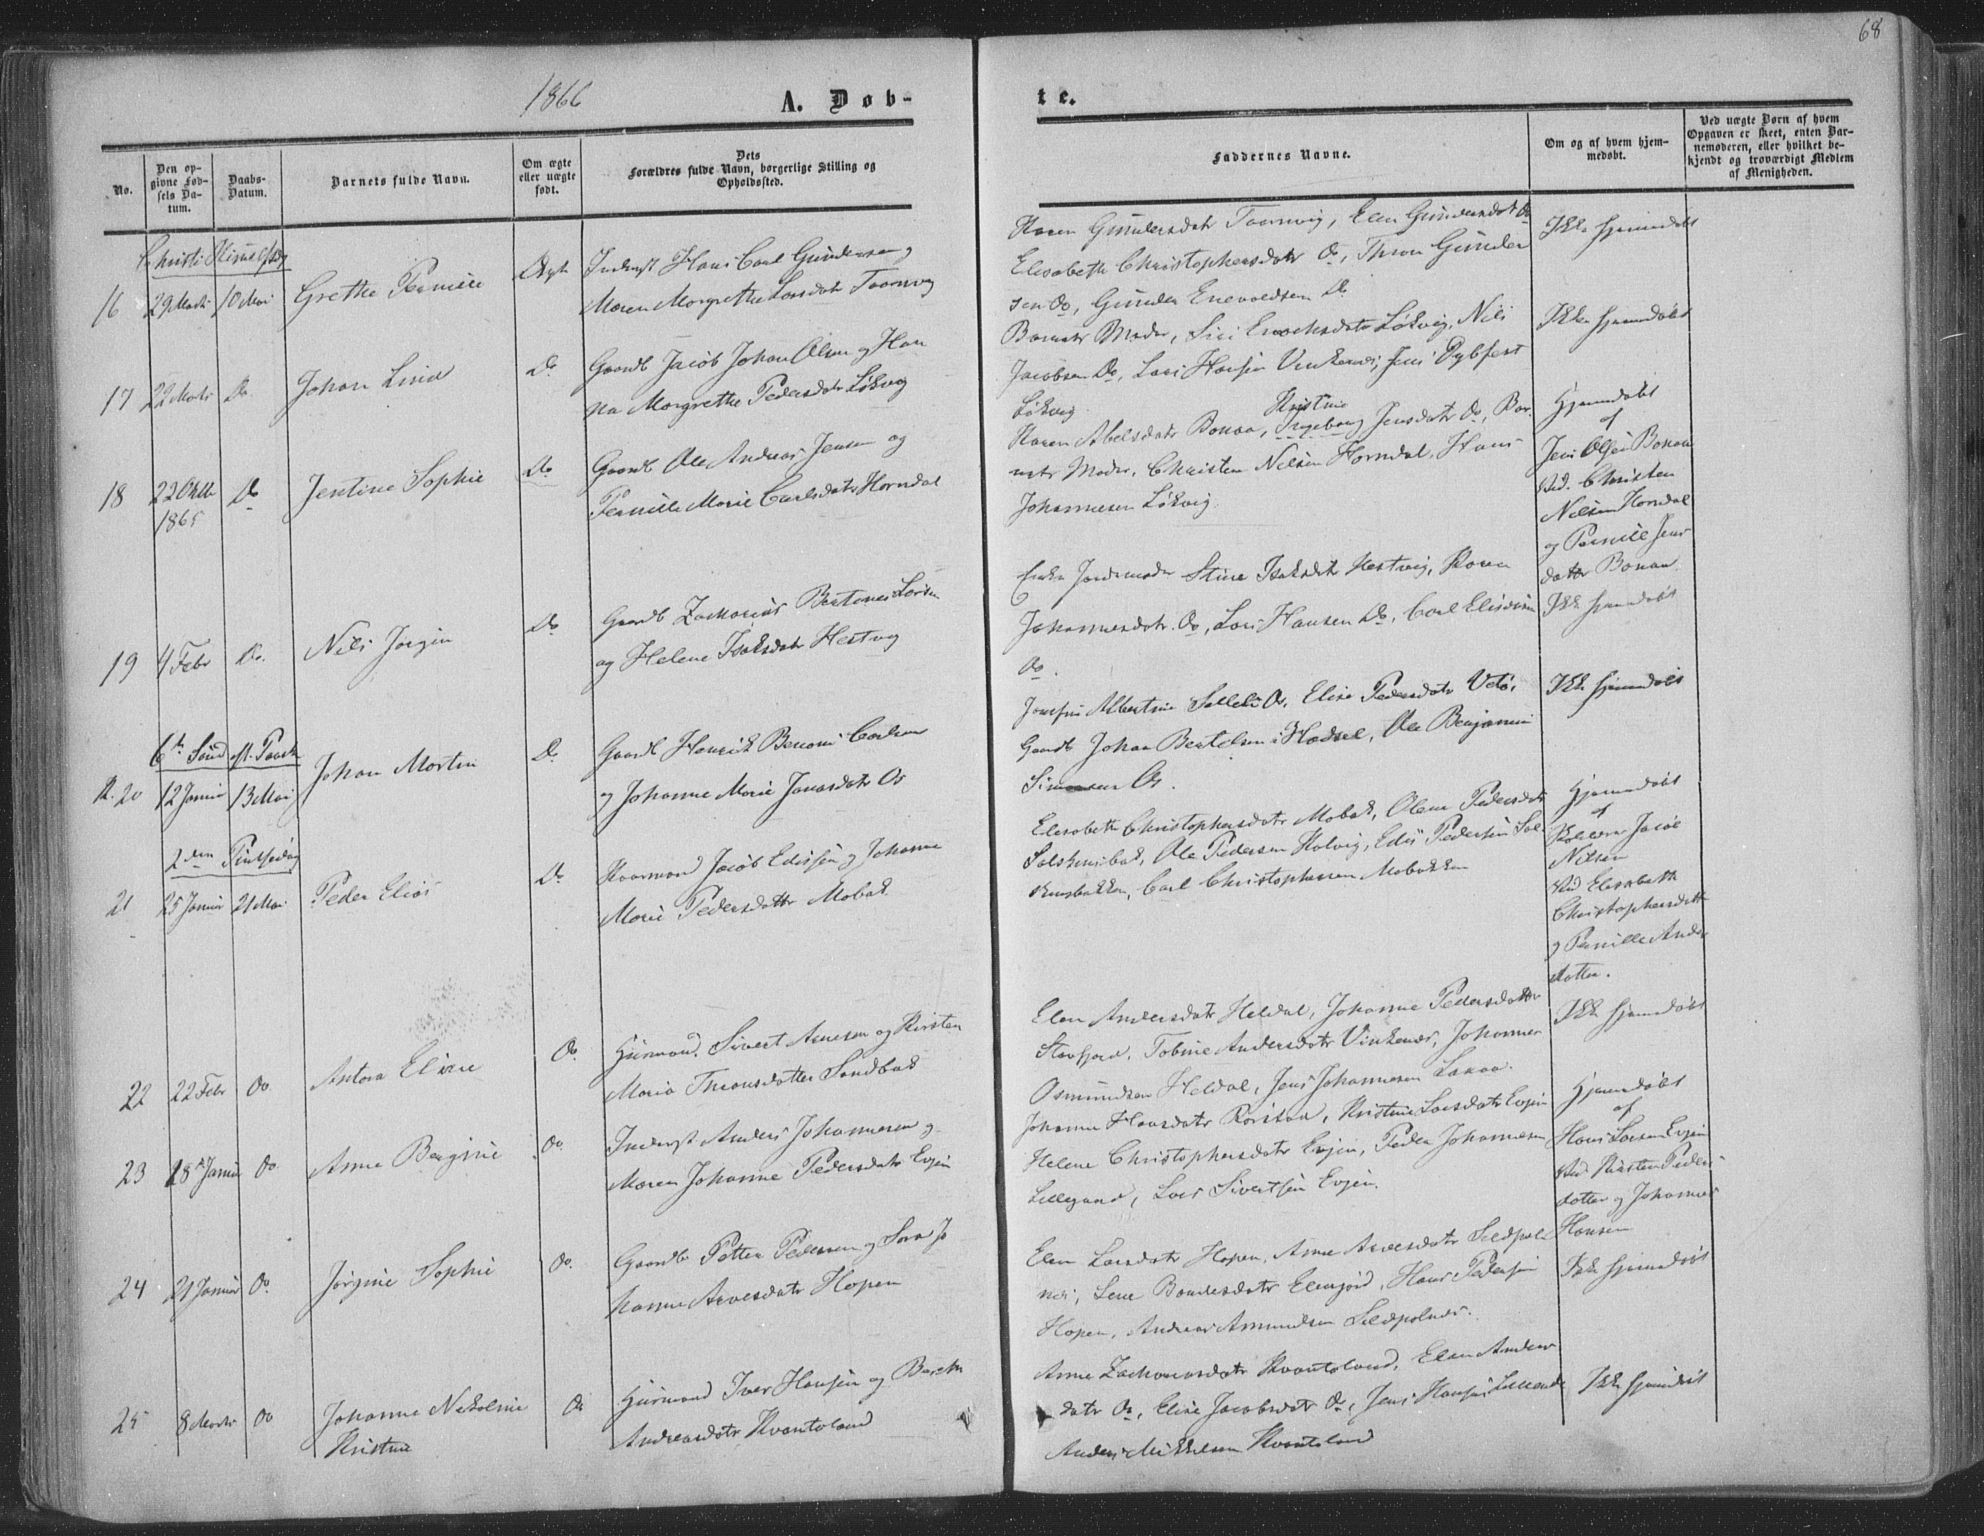 68
1866
A. Døb-
te.
No.
Den op-
givne Fød-
sels Da-
tum.
Daabs-
Datum.
Barnets fulde Navn.
Om ægte
eller uægte
født.
Dets
Forældres fulde Navn, borgerlige Stilling og
Opholdssted.
Faddernes Navne.
Om og af hvem hjem-
medøbt.
Ved uægte Børn af hvem
Opgaven er skeet, enten Bar-
nemoderen, eller hvilket be-
kjendt og troværdigt Medlem
af Menigheden.
Christi Himmelfdag
16 29 Marts 10 Mai Grethe Pernille Ægte Inderst Hans Carl Gundersen og
Maren Margrethe Larsdatr Taarnvig
Karen Gundersdatr Taarnvig, Elen Gundersdatr Do
Elisabeth Christophersdatr Do, Thron Gunder
sen Do, Gunder Enevoldsen Do
Ikke hjemmdøbt
17 22 Marts Do. Johan Lind Do Gaardb Jacob Johan Olsen og Han
na Margrethe Pedersdatr Løkvig
Barnets Moder, Siri Enochsdatr Løkvig, Nils
Jacobsen Do, Lars Hansen Vinkenes, Jens Dybfest
Løkvig
Ikke hjemmdøbt
18 22 Oktb
1865
Do Jentine Sophie Do Gaardb Ole Andreas Jensen og
Pernille Marie Carlsdatr Horndal
Karen Abelsdatr Bonaa, Kristine Ingeborg Jensdatr Do, Bar-
nets Moder, Christen Nilsen Horndal, Hans
Johannesen Løkvig
Hjemmdøbt
af
Jens Olsen Bonaa
Vid. Christen
Nilsen Horndal
og Pernille Jens
datter Bonaa.
19 4 Febr Do. Nils Jørgen Do Gaardb Zacharias Bertinus Larsen
og Helene Isaksdatr Hestvig
Enke Jordemoder Stine Isaksdatr Hestvig, Karen
Johannesdatr. Do, Lars Hansen Do, Carl Eliassen
Do.
Ikke hjemmdøbt
6te Sønd eft. Paaske
R. 20 12 Januar 13 Mai Johan Morten Do Gaardb Henrik Benoni Carlsen
og Johanne Marie Jonasdatr Os
Josefine Albertine Os, Elise Pedersdatr
Gaardb Johan Bertelsen i Hadsel, Ole Benjamin
Simonsen Os.
Ikk hjemmdøbt
2den Pintsedag
21 25 Januar 21 Mai Peder Elias Do Huusmand Jacob Edissen og Johanne
Marie Pedersdatter Mobak
Elisabeth Christophersdatr Mobak, Olene Pedersdatr
Solskinsbak, Ole Pedersen Holvig, Edis Pedersen Sol-
skinsbakken, Carl Christophersen Mobakken
Hjemmdøbt
af
Jacob
Nilsen
Vid Elisabeth
Christophersdatter
og Pernille Anders
datter.
22 22 Febr Do Antora Elisie Do. Huusmand Sivert Arnesen og Kirsten
Maria Thronsdatter Sandbak
Elen Andersdatr Heldal, Johanne Pedersdatter
Storfjord, Tobine Andersdatr Vinkenes, Johannes
Osmundsen Heldal, Jens Johannesen Laxaa.
Ikk hjemmdøbt
23 18 Januar Do. Anne Bergine Do. Inderst Anders Johannesen og
Maren Johanne Pedersdatr Evjen
Johanna Hansdatr Rørstad, Kristine Larsdatr Evjen
Helene Christophersdatr Evjen, Peder Johannesen
Lillegaard, Lars Sivertsen Evjen.
Hjemmdøbt
af
Hans Larsen Evjen
Vid. Kirsten Peders
datter og Johannes
Hansen
24 21 Januar Do. Jørgine Sophie Do. Gaardb Petter Pedersen og Sara Jo
hanne Arnesdatr Hopen
Elen Larsdatr Hopen, Anne Arnesdatr Sildpol
nes, Lene Hans Pedersen
Hopen, Andreas Amundsen Sildpolnes.
Ikk hjemmdøbt
25 8 Marts Do Johanne Nikoline
Kristine
Do Huusmand Iver Hansen og Bereth
Andreasdatr Kvantoland
Anne Zachariasdatr Kvantoland, Elen Anders
datr Do, Elise Jacobsdatr Do, Jens Hansen
Anders Mikkelsen Kvantoland
Ikk hjemmdøbt